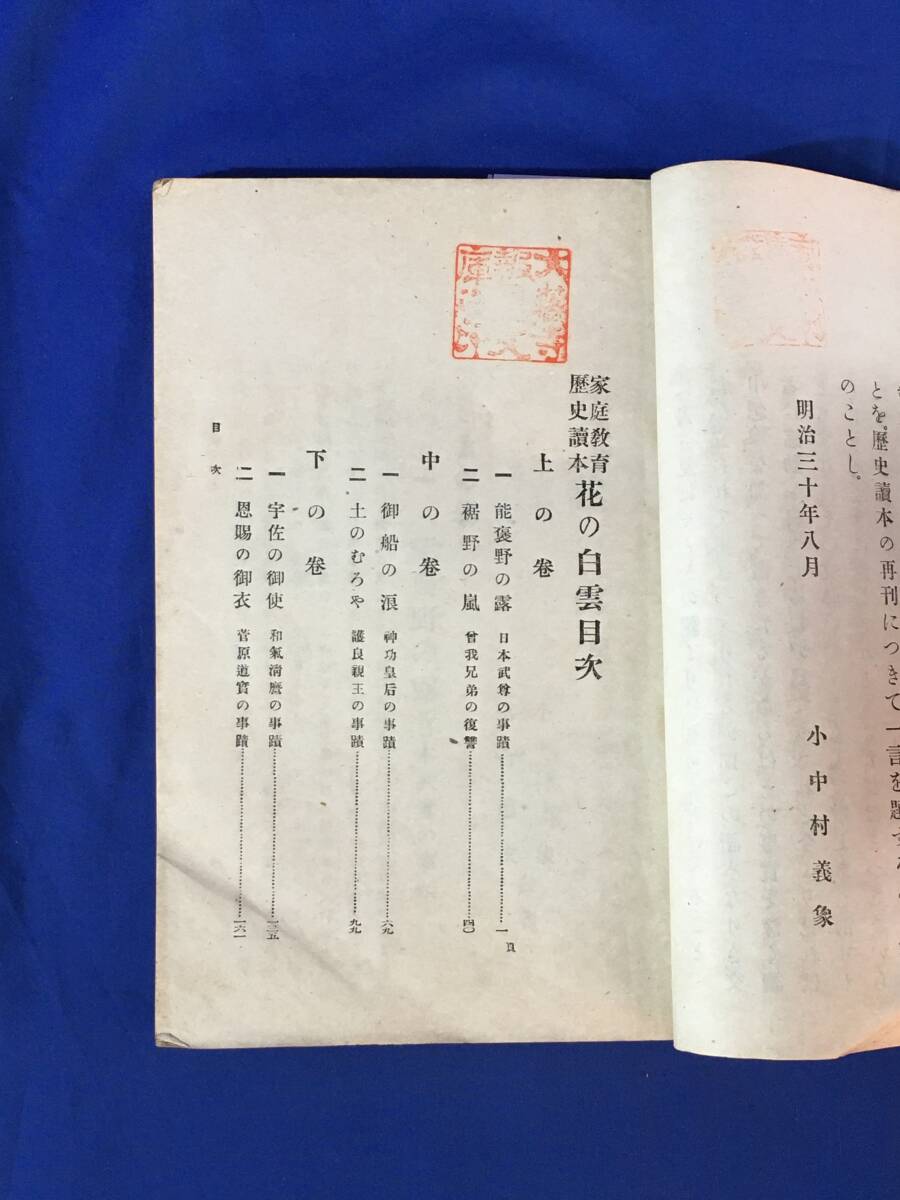 とを。歷史讀本の再刊につきて一言を題す
のことし。
明治三十年八月
小中村義象
家庭敎育
歷史讀本
花の白雲目次
上の卷
一 能褒野の露 日本武尊の事蹟……一頁
二 裾野の嵐 曾我兄弟の復讐……四〇
中の卷
一 御船の浪 神功皇后の事蹟……六九
二 土のむろや 護良親王の事蹟……九九
下の卷
一 宇佐の御使 和氣淸麿の事蹟……一三五
二 恩賜の御衣 菅原道實の事蹟……一六一
目次